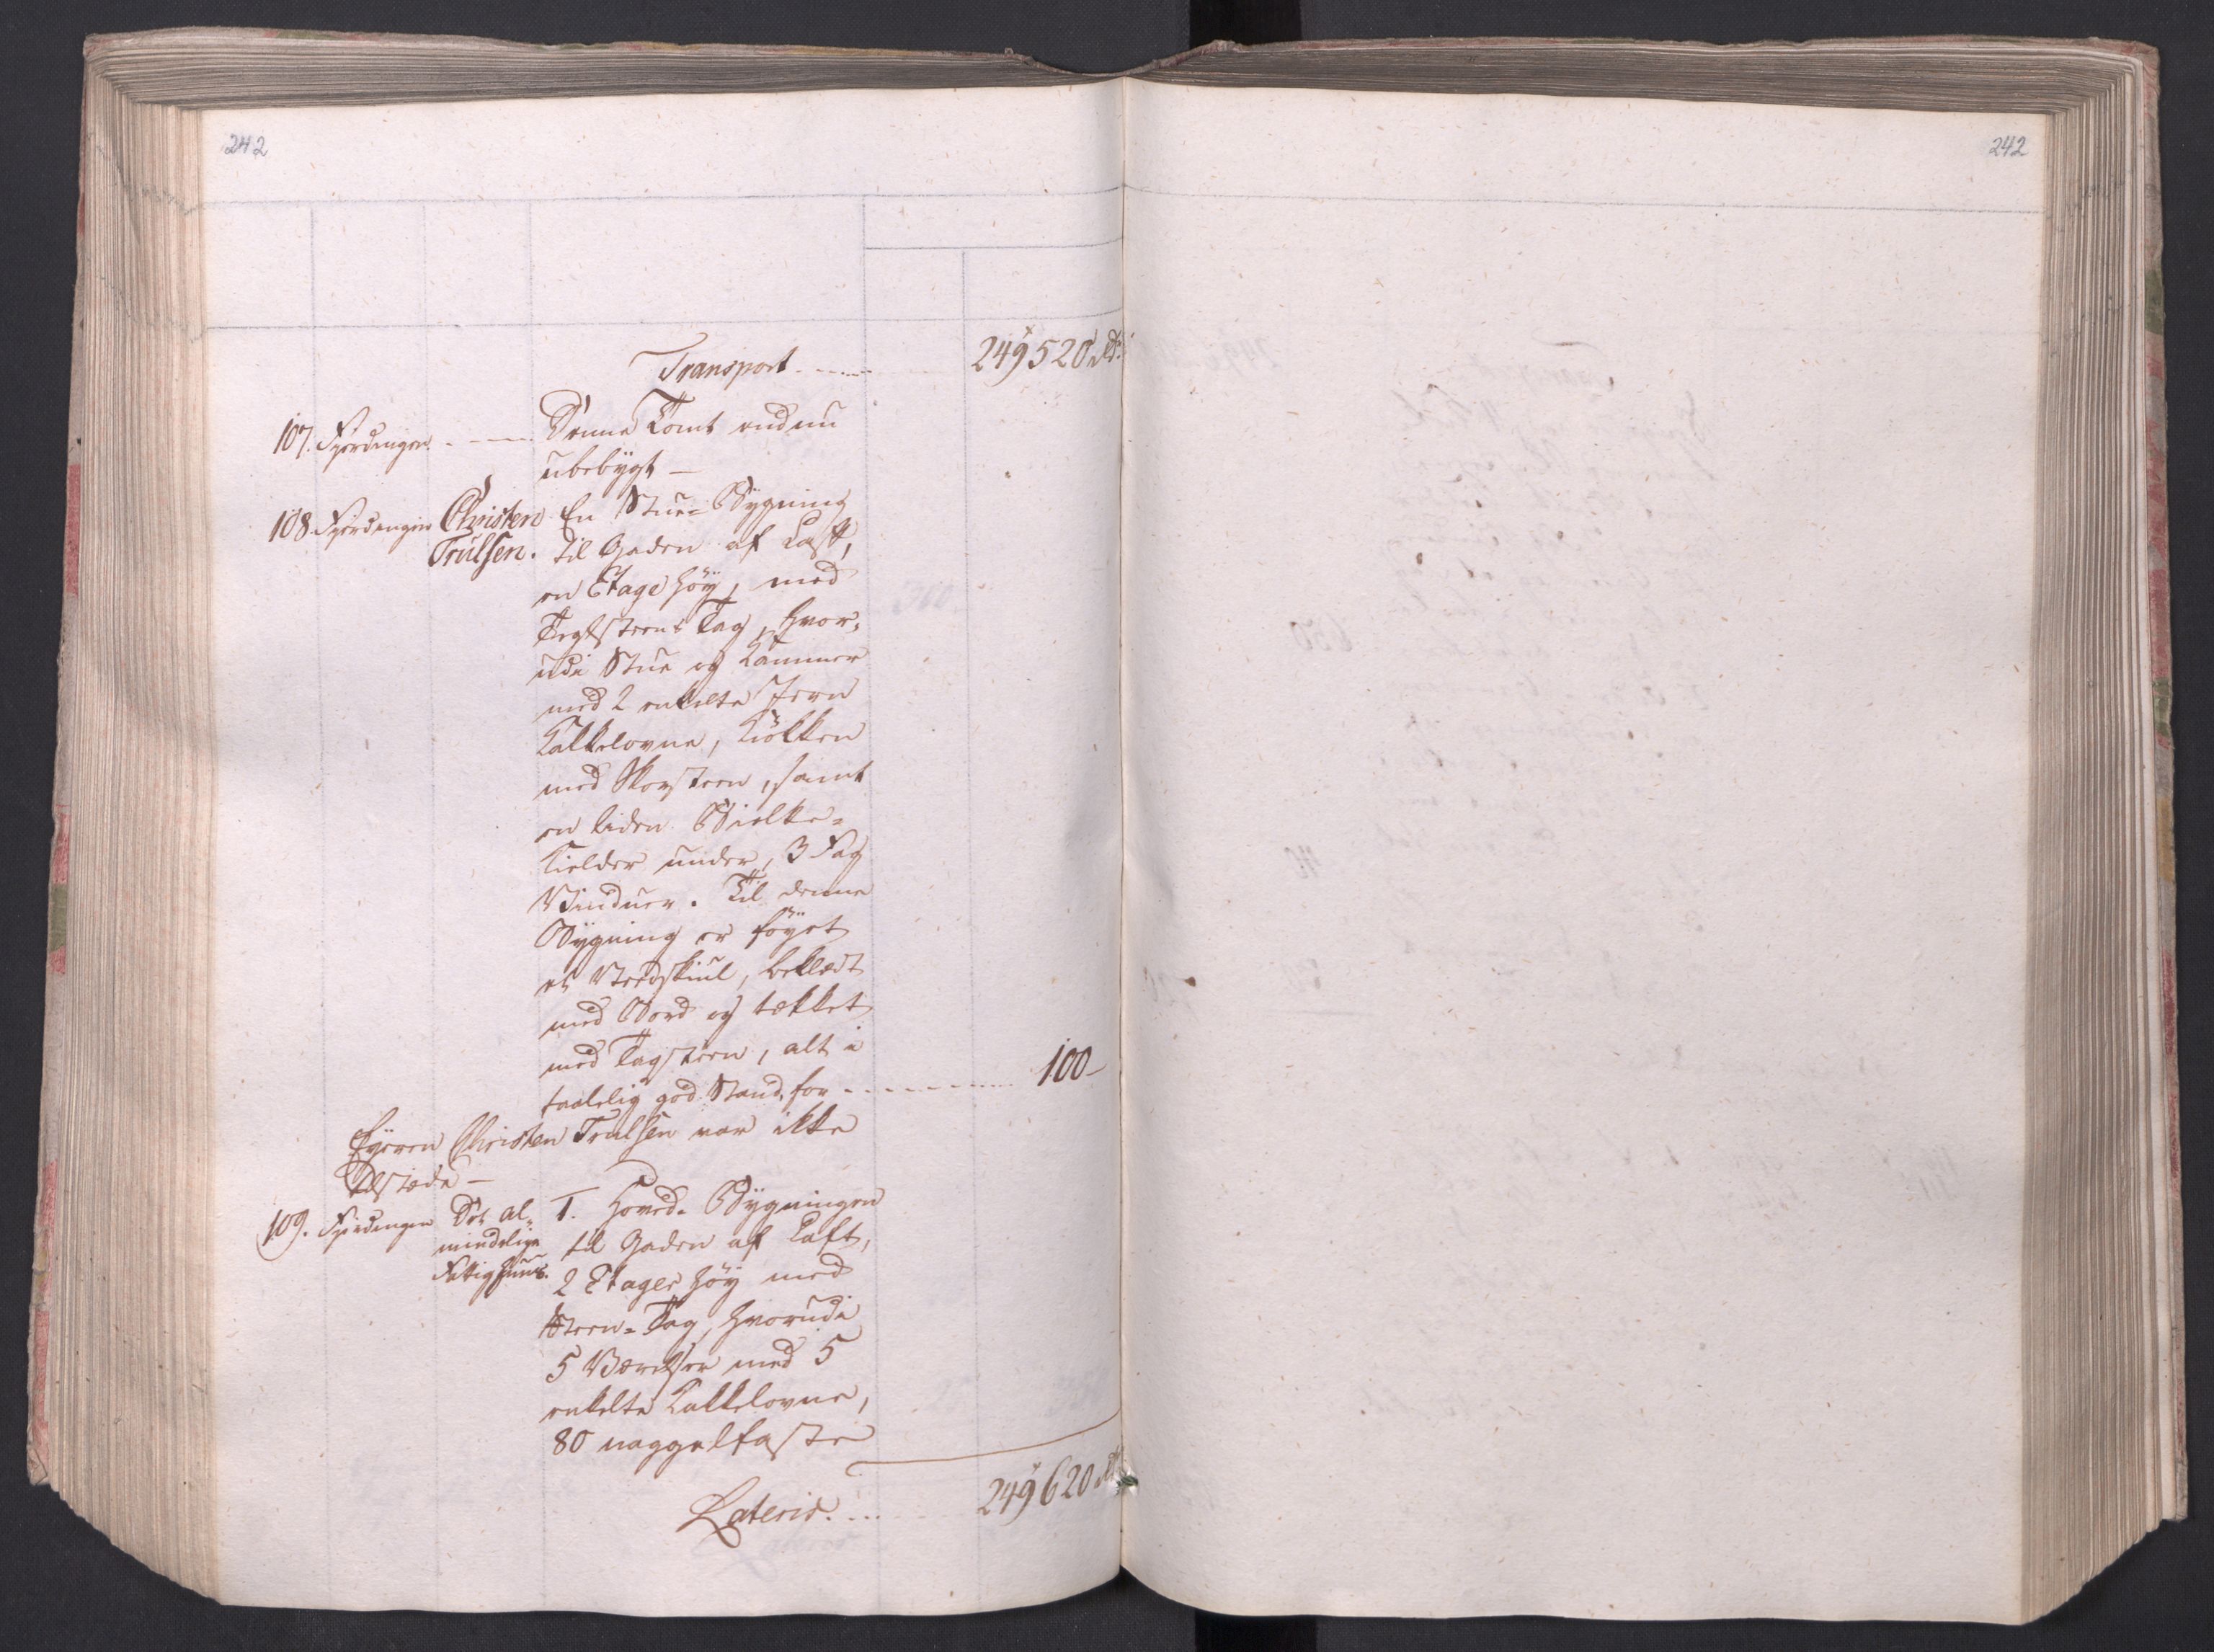 242
242
Transport - - - - - 249520 Rd.
107. Fjerdingen. - - - Denne Tomt endnu
ubebygt -
108. Fjerdingen Christen En Stue-Bygning
Trulsen. til Gaden af Laft,
en Etage høy, med
Teglsteens Tag, hvor-
udi Stue og Kammer
med 2 enkelte Jern
Kakkelovne, Kiökken
med Skorsteen, samt
en liden Bielke-
Kielder under, 3 Fag
Vinduer. Til denne
Bygning er føyet
et Vedskiul, beklædt
med Bord og tækket
med Tagsteen, alt i
taalelig god Stand, for - - - - 100 -
Eyeren Christen Trulsen var ikke
tilstæde -
109. Fjerdingen Det al- 1. Hoved-Bygningen
mindelige til Gaden af Laft,
Fattighuus. 2 Etager høy med
Steen-Tag, hvorudi
5 Værelser med 5
enkelte Kakkelovne,
80 naggelfaste
Lateris. - - - 249620 Rd.